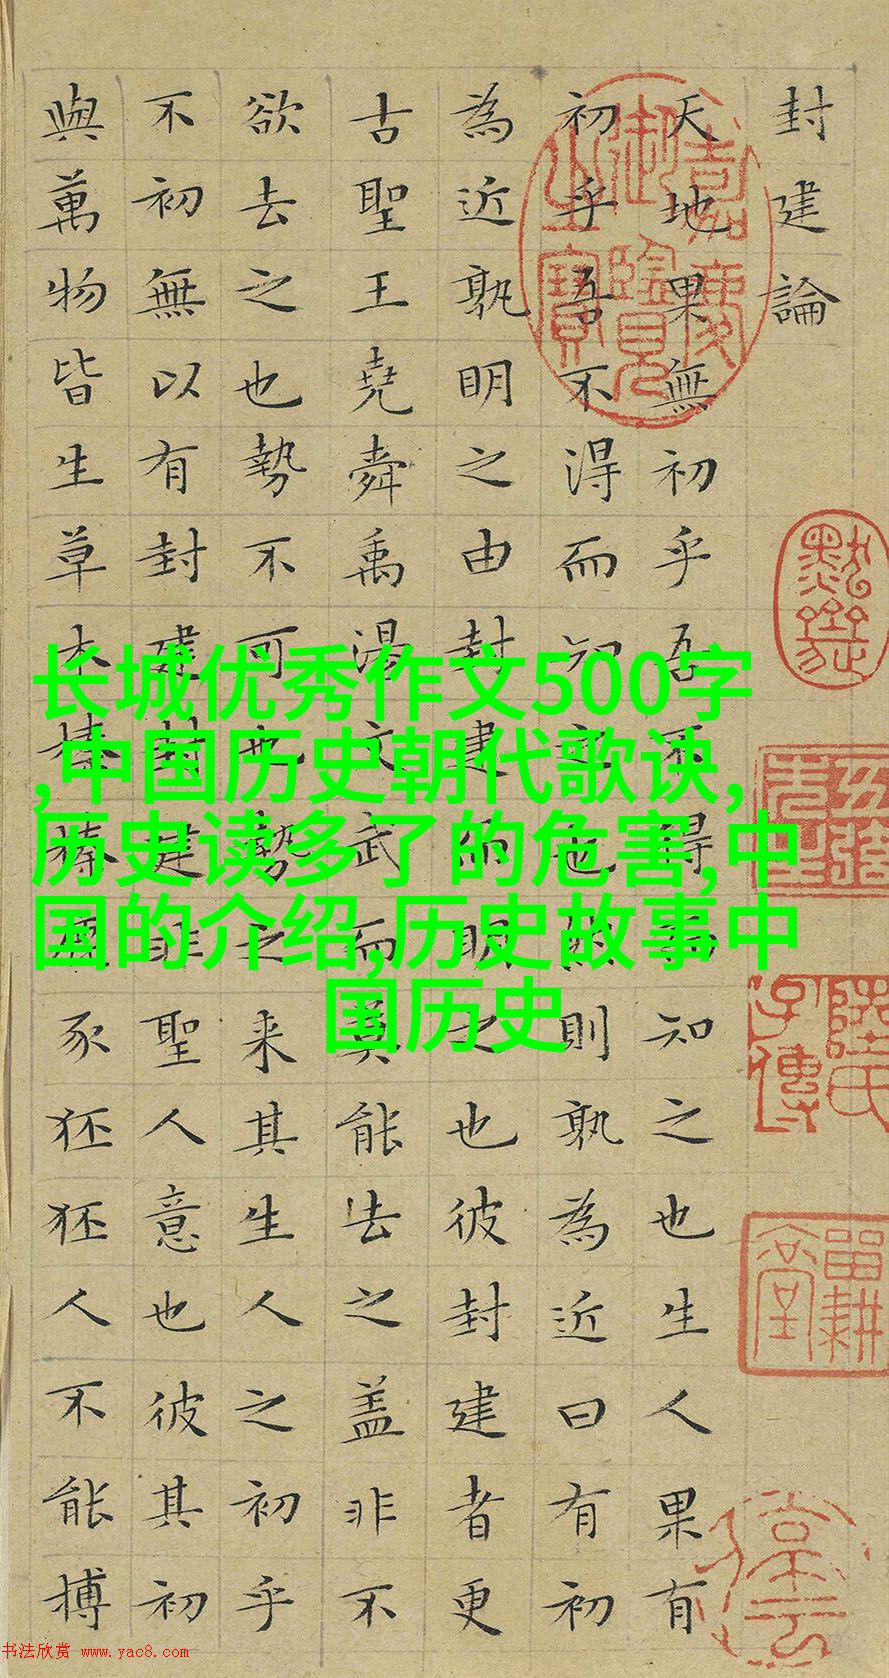 封建論
天地果無初乎吾不得而知之也生人果有
初乎吾不得而知之也然則孰為近曰有初
為近孰明之由封建而明之也彼封建者更
古聖王堯舜禹湯文武而莫能去之盖非不
欲去之也勢不可也勢之来其生人之初乎
不初無以有封建封建非聖人意也彼其初
與萬物皆生草木榛榛鹿豕狉狉人不能搏
嘉慶御覽之寶
长城优秀作文500字
,中国历史朝代歌诀,
历史读多了的危害,中
国的介绍,历史故事中
国历史
书法欣赏 www.yac8.com